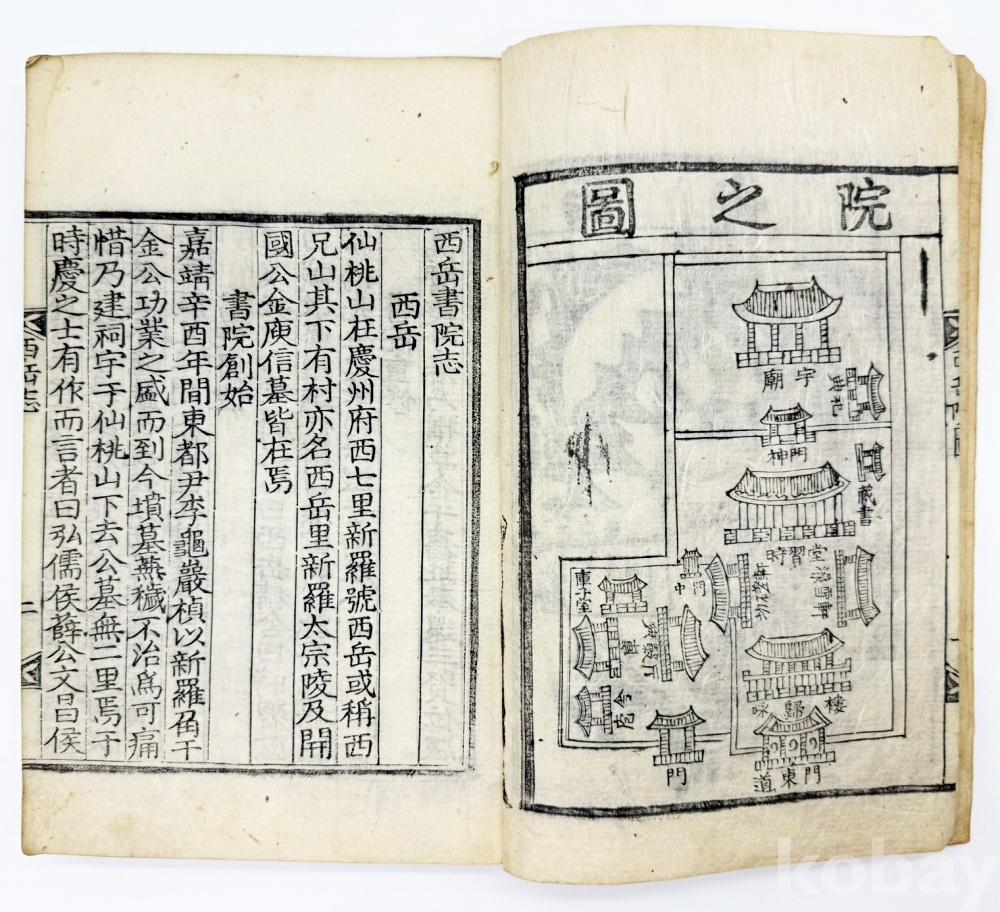 院之圖
廟宇
典祀
神門
藏書
時習堂
澡雪軒
中門
庫子室
庫
詠歸樓
道東門
門
西岳書院志
西岳
仙桃山在慶州府西七里新羅號西岳或稱西
兄山其下有村亦名西岳里新羅太宗陵及開
國公金庾信墓皆在焉
書院創始
嘉靖辛酉年間東都尹李龜巖楨以新羅角干
金公功業之盛而到今墳墓蕪穢不治爲可痛
惜乃建祠宇于仙桃山下去公墓無二里焉于
時慶之士有作而言者曰弘儒侯薛公文昌侯
西岳志
二
kobay